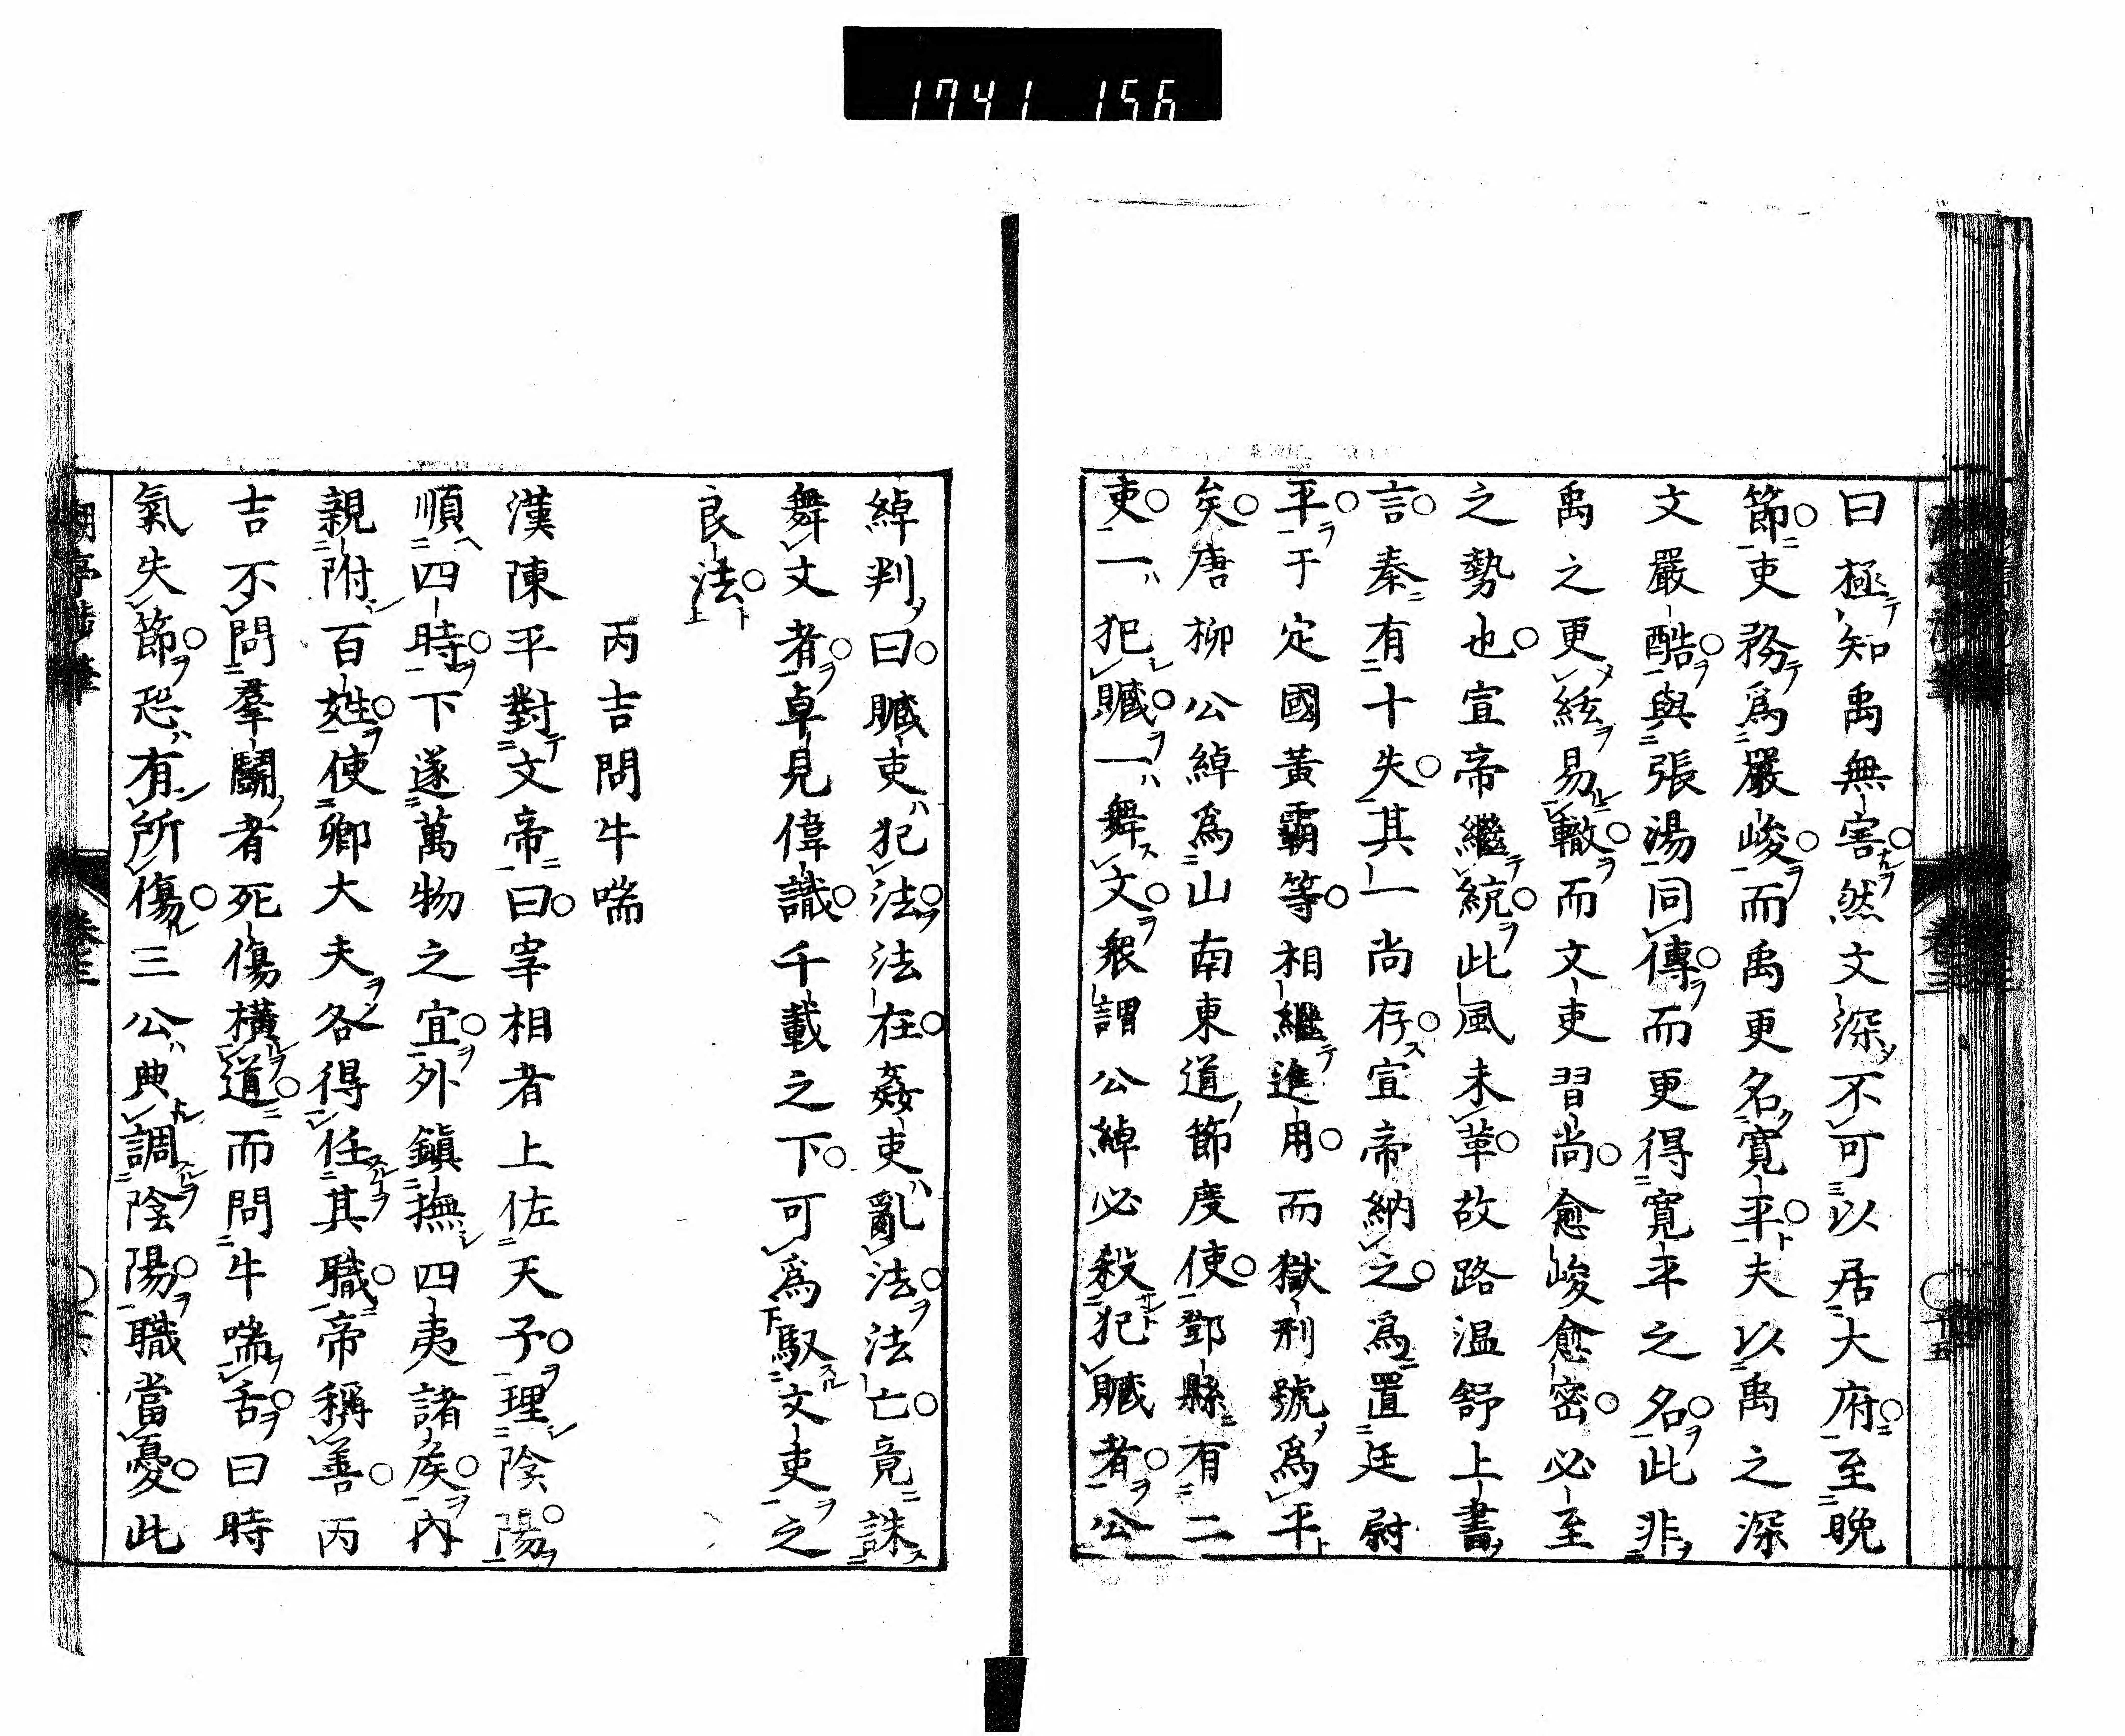 1741 156
曰極知禹無害然文深不可以居大府至晚
節吏務爲嚴峻而禹更名寛平夫以禹之深
文嚴酷與張湯同傳而更得寛平之名此非
禹之更絃易轍而文吏習尚愈峻愈密必至
之勢也宣帝繼統此風未革故路温舒上書
言秦有十失其一尚存宣帝納之爲置廷尉
平于定國黃霸等相繼進用而獄刑號爲平
矣唐柳公綽爲山南東道節度使鄧縣有二
吏一犯贓一舞文衆謂公綽必殺犯贓者公
綽判曰贓吏犯法法在姦吏亂法法亡竟誅
舞文者卓見偉識千載之下可爲馭文吏之
良法
丙吉問牛喘
漢陳平對文帝曰宰相者上佐天子理陰陽
順四時下遂萬物之宜外鎮撫四夷諸矦內
親附百姓使卿大夫各得任其職帝稱善丙
吉不問羣鬪者死傷橫道而問牛喘舌曰時
氣失節恐有所傷三公典調陰陽職當憂此